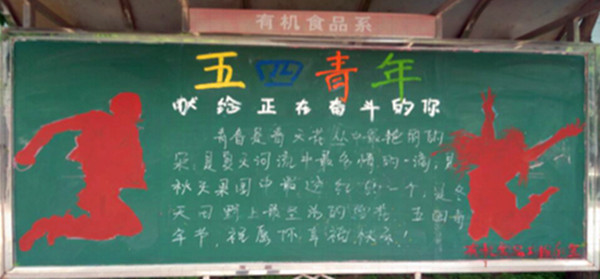 有机食品系
五四青年
献给正在奋斗的你
青春是春天花丛中最艳丽的
朵,是夏天河流中最多情的一滴,是
秋天果园中最这红的一个,是冬
天田野上最 的雪花 五四青
年节,祝愿你幸福快乐!